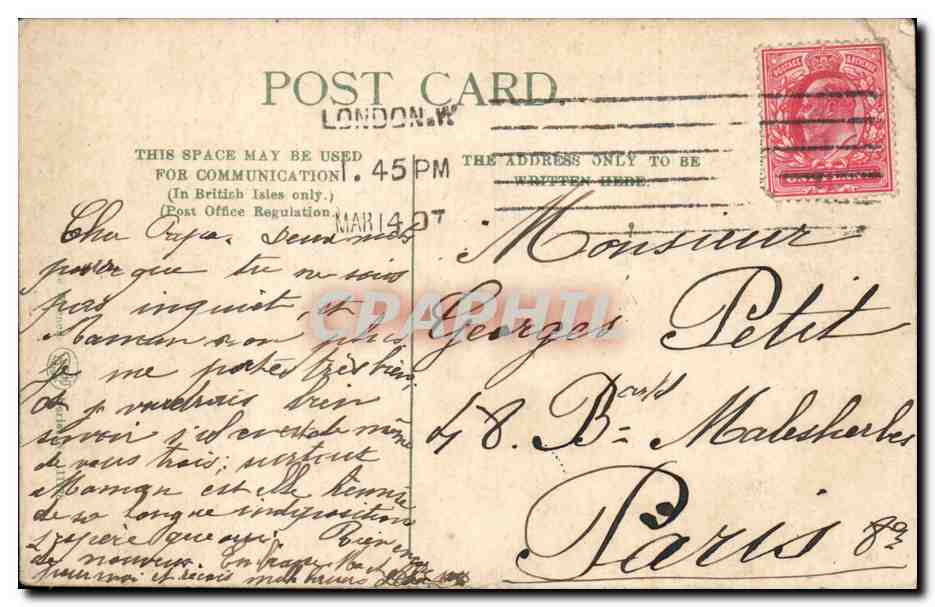 POST CARD.
LONDON. W
1. 45 PM
MAR 14 07
THIS SPACE MAY BE USED
FOR COMMUNICATION
(In British Isles only.)
(Post Office Regulation.)
THE ADDRESS ONLY TO BE
WRITTEN HERE.
POSTAGE REVENUE
Cher Papa. Deux mots
pour que tu ne sois
pas inquiet et
Maman non plus
Je me porte très bien,
et je voudrais bien
savoir s'il en est de même
de vous trois; surtout
Maman est elle
de sa longue indisposition
j'espère que oui. Rien
de nouveau. Embrasse
pour moi et reçois
CPARPHIL
Monsieur
Georges Petit
48. Bould Malesherbes
Paris